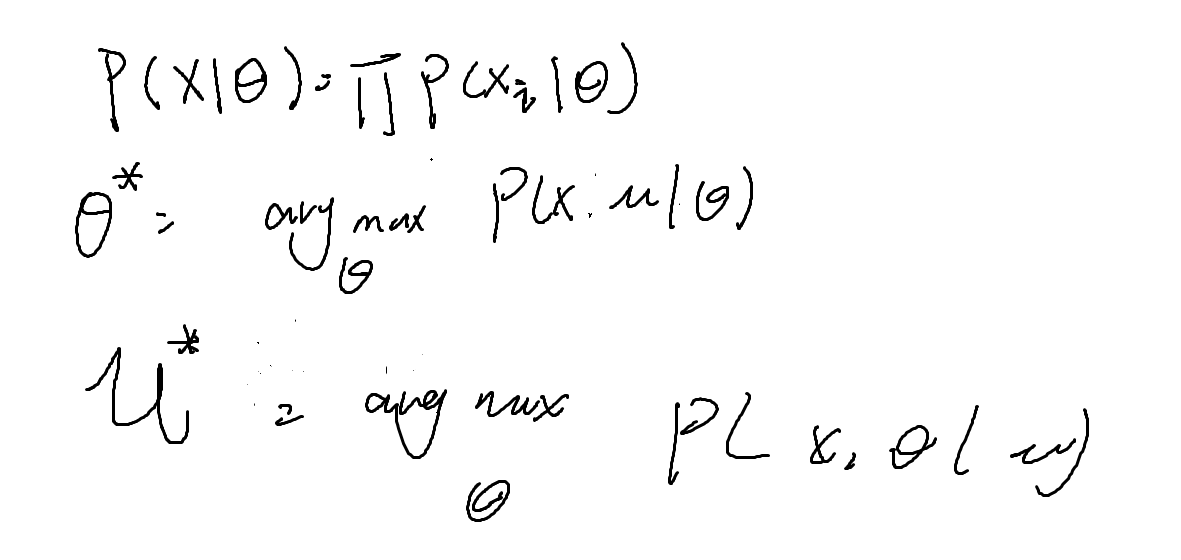 P(X|θ) = ∏ P(x_i|θ)
θ* = arg max_θ P(x, u|θ)
u* = arg max_θ P(x, θ|u)